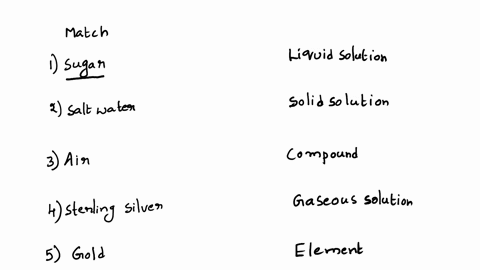 Match
1) Sugar Liquid solution
2) Salt water Solid solution
3) Air Compound
4) Sterling silver Gaseous solution
5) Gold Element